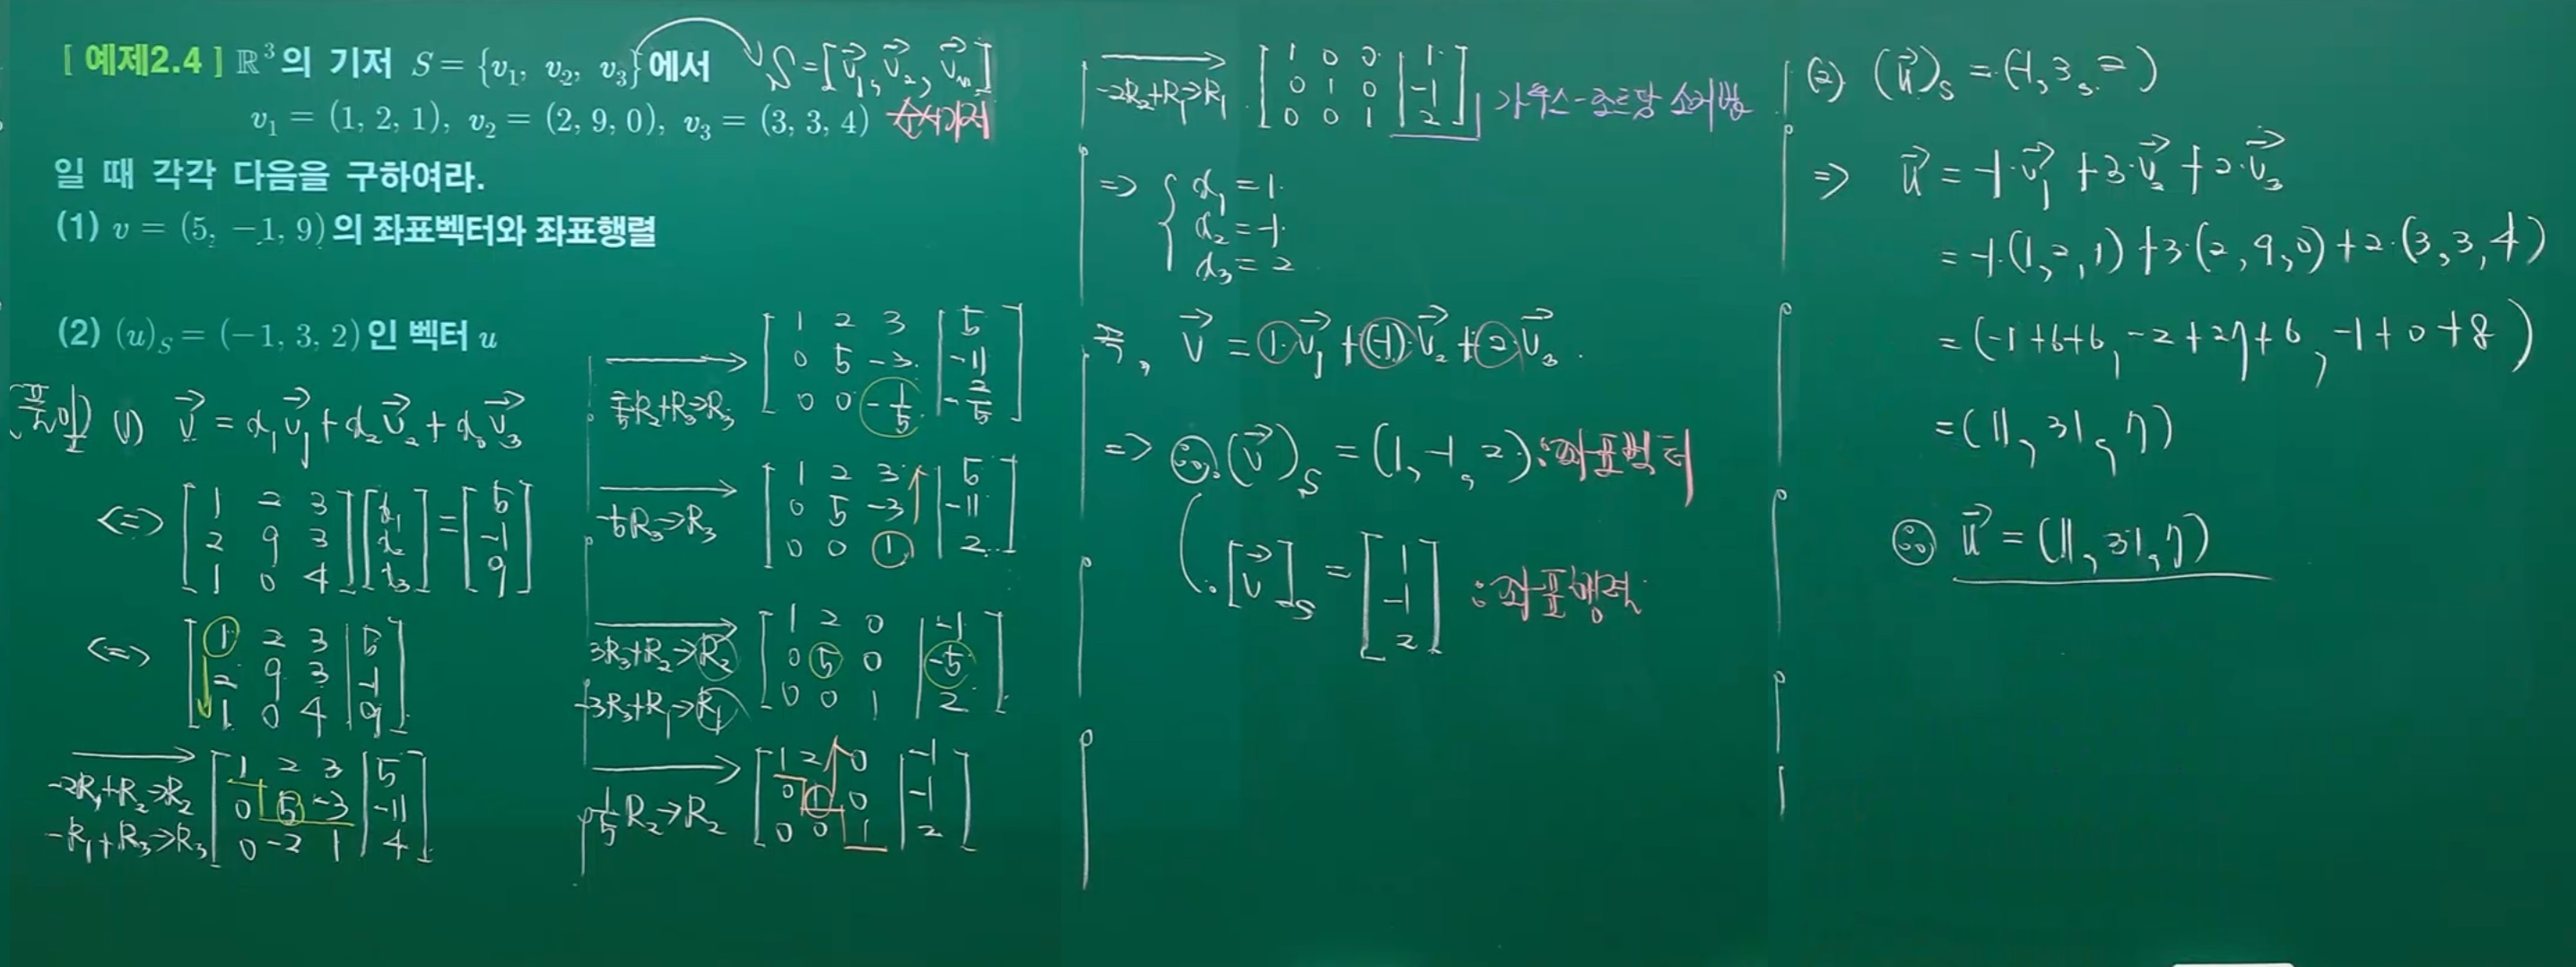 [ 예제2.4 ] ℝ³의 기저 S = {v₁, v₂, v₃}에서
S = [v⃗₁, v⃗₂, v⃗ₙ]
v₁ = (1, 2, 1), v₂ = (2, 9, 0), v₃ = (3, 3, 4) 순서기저
일 때 각각 다음을 구하여라.
(1) v = (5, −1, 9)의 좌표벡터와 좌표행렬
(2) (u)ₛ = (−1, 3, 2)인 벡터 u
(풀이) (1) v⃗ = α₁v⃗₁ + α₂v⃗₂ + α₃v⃗₃
<=> [1 2 3
2 9 3
1 0 4] [α₁
α₂
α₃] = [5
-1
9]
<=> [1 2 3 | 5
2 9 3 | -1
1 0 4 | 9]
→ -2R₁+R₂→R₂
-R₁+R₃→R₃
[1 2 3 | 5
0 5 -3 | -11
0 -2 1 | 4]
→ 2/5R₂+R₃→R₃
[1 2 3 | 5
0 5 -3 | -11
0 0 -1/5 | -2/5]
→ -5R₃→R₃
[1 2 3 | 5
0 5 -3 | -11
0 0 1 | 2]
→ 3R₃+R₂→R₂
-3R₃+R₁→R₁
[1 2 0 | -1
0 5 0 | -5
0 0 1 | 2]
→ 1/5R₂→R₂
[1 2 0 | -1
0 1 0 | -1
0 0 1 | 2]
→ -2R₂+R₁→R₁
[1 0 0 | 1
0 1 0 | -1
0 0 1 | 2] 가우스-조르당 소거법
=> { α₁ = 1
α₂ = -1
α₃ = 2
즉, v⃗ = 1·v⃗₁ + (-1)·v⃗₂ + 2·v⃗₃.
=> ∴ (v⃗)ₛ = (1, -1, 2) : 좌표벡터
[v⃗]ₛ = [1
-1
2] : 좌표행렬
(2) (u⃗)ₛ = (-1, 3, 2)
=> u⃗ = -1·v⃗₁ + 3·v⃗₂ + 2·v⃗₃
= -1·(1, 2, 1) + 3·(2, 9, 0) + 2·(3, 3, 4)
= (-1+6+6, -2+27+6, -1+0+8)
= (11, 31, 7)
∴ u⃗ = (11, 31, 7)